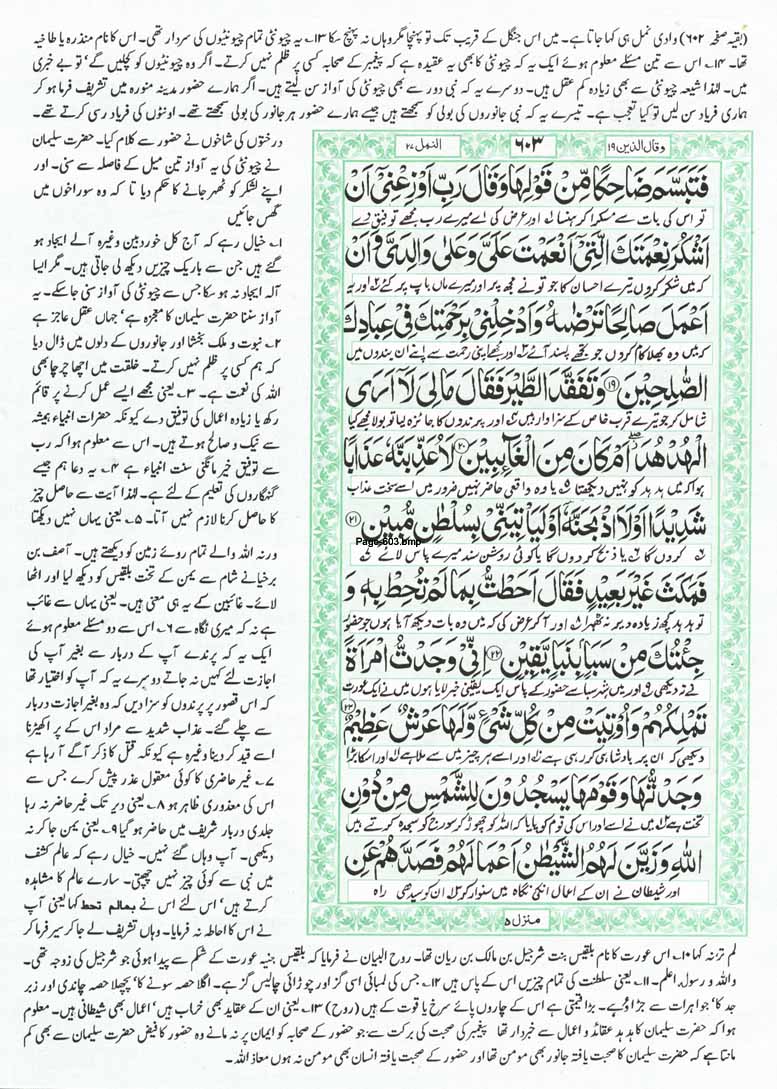 (بقیہ صفحہ ۶۰۲) وادی نمل ہی کہا جاتا ہے۔ میں اس جنگل کے قریب تک تو پہنچا مگر وہاں نہ پہنچ سکا ۱۳؎ یہ چیونٹی تمام چیونٹیوں کی سردار تھی۔ اس کا نام منذرہ یا طاخیہ
تھا۔ ۱۴؎ اس سے تین مسئلے معلوم ہوئے ایک یہ کہ چیونٹی کا بھی یہ عقیدہ ہے کہ پیغمبر کے صحابہ کسی پر ظلم نہیں کرتے۔ اگر وہ چیونٹیوں کو کچلیں گے‘ تو بے خبری
میں۔ لہٰذا شیعہ چیونٹی سے بھی زیادہ کم عقل ہیں۔ دوسرے یہ کہ نبی دور سے بھی چیونٹی کی آواز سن لیتے ہیں۔ اگر ہمارے حضور مدینہ منورہ میں تشریف فرما ہو کر
ہماری فریاد سن لیں تو کیا تعجب ہے۔ تیسرے یہ کہ نبی جانوروں کی بولی کو سمجھتے ہیں جیسے ہمارے حضور ہر جانور کی بولی سمجھتے تھے۔ اونٹوں کی فریاد رسی کرتے تھے۔
درختوں کی شاخوں نے حضور سے کلام کیا۔ حضرت سلیمان
نے چیونٹی کی یہ آواز تین میل کے فاصلہ سے سنی۔ اور
اپنے لشکر کو ٹھہر جانے کا حکم دیا تا کہ وہ سوراخوں میں
گھس جائیں
۱؎ خیال رہے کہ آج کل خوردبین وغیرہ آلے ایجاد ہو
گئے ہیں جن سے باریک چیزیں دیکھ لی جاتی ہیں۔ مگر ایسا
آلہ ایجاد نہ ہو سکا جس سے چیونٹی کی آواز سنی جا سکے۔ یہ
آواز سننا حضرت سلیمان کا معجزہ ہے‘ جہاں عقل عاجز ہے
۲؎ نبوت و ملک بخشا اور جانوروں کے دلوں میں ڈال دیا
کہ ہم کسی پر ظلم نہیں کرتے۔ خلقت میں اچھا چرچا بھی
اللہ کی نعمت ہے۔ ۳؎ یعنی مجھے ایسے عمل کرنے پر قائم
رکھ یا زیادہ اعمال کی توفیق دے کیونکہ حضرات انبیاء ہمیشہ
سے نیک و صالح ہوتے ہیں۔ اس سے معلوم ہوا کہ رب
سے توفیق خیر مانگنی سنت انبیاء ہے ۴؎ یہ دعا ہم جیسے
گنہگاروں کی تعلیم کے لئے ہے۔ لہٰذا آیت سے حاصل چیز
کا حاصل کرنا لازم نہیں آتا۔ ۵؎ یعنی یہاں نہیں دیکھتا
ورنہ اللہ والے تمام روئے زمین کو دیکھتے ہیں۔ آصف بن
برخیا نے شام سے یمن کے تخت بلقیس کو دیکھ لیا اور اٹھا
لائے۔ غائبین کے یہ ہی معنی ہیں۔ یعنی یہاں سے غائب
ہے نہ کہ میری نگاہ سے ۶؎ اس سے دو مسئلے معلوم ہوئے
ایک یہ کہ پرندے آپ کے دربار سے بغیر آپ کی
اجازت لئے کہیں نہ جاتے دوسرے یہ کہ آپ کو اختیار تھا
کہ اس قصور پر پرندوں کو سزا دیں کہ وہ بغیر اجازت دربار
سے چلے گئے۔ عذاب شدید سے مراد اس کے پر اکھیڑنا
اسے قید کر دینا وغیرہ ہے کیونکہ قتل کا ذکر آگے آ رہا ہے
۷؎ غیر حاضری کا کوئی معقول عذر پیش کرے جس سے
اس کی معذوری ظاہر ہو ۸؎ یعنی دیر تک غیر حاضر نہ رہا
جلدی دربار شریف میں حاضر ہو گیا ۹؎ یعنی یمن جا کر نہ
دیکھی۔ آپ وہاں گئے نہیں۔ خیال رہے کہ عالم کشف
میں نبی سے کوئی چیز نہیں چھپتی۔ سارے عالم کا مشاہدہ
کرتے ہیں‘ اس لئے اس نے بمالم تحط کہا یعنی آپ
نے اس کا احاطہ نہ فرمایا۔ وہاں تشریف لے جا کر سیر فرما کر
وقال الذین ۱۹
۶۰۳
النمل ۲۷
فَتَبَسَّمَ ضَاحِكًا مِّنْ قَوْلِهَا وَقَالَ رَبِّ اَوْزِعْنِیْۤ اَنْ
تو اس کی بات سے مسکرا کر ہنسا اور عرض کی اے میرے رب مجھے توفیق دے
اَشْكُرَ نِعْمَتَكَ الَّتِیْۤ اَنْعَمْتَ عَلَیَّ وَعَلٰی وَالِدَیَّ وَاَنْ
کہ میں شکر کروں تیرے احسان کا جو تو نے مجھ پر اور میرے ماں باپ پر کئے اور یہ
اَعْمَلَ صَالِحًا تَرْضٰىهُ وَاَدْخِلْنِیْ بِرَحْمَتِكَ فِیْ عِبَادِكَ
کہ میں وہ بھلا کام کروں جو تجھے پسند آئے اور مجھے اپنی رحمت سے اپنے ان بندوں میں
الصّٰلِحِیْنَ ۱۹ وَتَفَقَّدَ الطَّیْرَ فَقَالَ مَا لِیَ لَاۤ اَرَی
شامل کر جو تیرے قرب خاص کے سزاوار ہیں اور پرندوں کا جائزہ لیا تو بولا مجھے کیا
الْهُدْهُدَ ۖ اَمْ كَانَ مِنَ الْغَآىِٕبِیْنَ ۲۰ لَاُعَذِّبَنَّهٗ عَذَابًا
ہوا کہ میں ہدہد کو نہیں دیکھتا یا وہ واقعی حاضر نہیں ضرور میں اسے سخت عذاب
شَدِیْدًا اَوْ لَاۡاَذْبَحَنَّهٗۤ اَوْ لَیَاْتِیَنِّیْ بِسُلْطٰنٍ مُّبِیْنٍ ۲۱
کروں گا یا ذبح کر دوں گا یا کوئی روشن سند میرے پاس لائے
Page-603.bmp
فَمَكَثَ غَیْرَ بَعِیْدٍ فَقَالَ اَحَطْتُّ بِمَا لَمْ تُحِطْ بِهٖ وَ
تو ہدہد کچھ زیادہ دیر نہ ٹھہرا اور آ کر عرض کی کہ میں وہ بات دیکھ آیا ہوں جو حضور
جِئْتُكَ مِنْ سَبَاٍۭ بِنَبَاٍ یَّقِیْنٍ ۲۲ اِنِّیْ وَجَدْتُّ امْرَاَةً
نے نہ دیکھی اور میں شہر سبا سے حضور کے پاس ایک یقینی خبر لایا ہوں میں نے ایک عورت
تَمْلِكُهُمْ وَاُوْتِیَتْ مِنْ كُلِّ شَیْءٍ وَّلَهَا عَرْشٌ عَظِیْمٌ ۲۳
دیکھی کہ ان پر بادشاہی کر رہی ہے اور اسے ہر چیز میں سے ملا ہے اور اس کا بڑا
وَجَدْتُّهَا وَقَوْمَهَا یَسْجُدُوْنَ لِلشَّمْسِ مِنْ دُوْنِ
تخت ہے میں نے اسے اور اس کی قوم کو پایا کہ اللہ کو چھوڑ کر سورج کو سجدہ کرتے ہیں
اللّٰهِ وَزَیَّنَ لَهُمُ الشَّیْطٰنُ اَعْمَالَهُمْ فَصَدَّهُمْ عَنِ
اور شیطان نے ان کے اعمال انکی نگاہ میں سنوار کر ان کو سیدھی راہ
منزل ۵
لم تزنہ کہا ۱۰؎ اس عورت کا نام بلقیس بنت شرجیل بن مالک بن ریان تھا۔ روح البیان نے فرمایا کہ بلقیس جنیہ عورت کے شکم سے پیدا ہوئی جو شرجیل کی زوجہ تھی۔
واللہ و رسولہ اعلم۔ ۱۱؎ یعنی سلطنت کی تمام چیزیں اس کے پاس ہیں ۱۲؎ جس کی لمبائی اسی گز اور چوڑائی چالیس گز ہے۔ اگلا حصہ سونے کا‘ پچھلا حصہ چاندی اور زبر
جد کا‘ جواہرات سے جڑا ہے۔ بڑا قیمتی ہے اس کے چاروں پائے سرخ یاقوت کے ہیں (روح) ۱۳؎ یعنی ان کے عقاید بھی خراب ہیں‘ اعمال بھی شیطانی ہیں۔ معلوم
ہوا کہ حضرت سلیمان کا ہدہد عقائد و اعمال سے خبردار تھا پیغمبر کی صحبت کی برکت سے جو حضور کے صحابہ کو ایمان پر نہ مانے وہ حضور کا فیض حضرت سلیمان سے بھی کم
مانتا ہے کہ حضرت سلیمان کا صحبت یافتہ جانور بھی مومن تھا اور حضور کے صحبت یافتہ انسان بھی مومن نہ ہوں معاذ اللہ۔